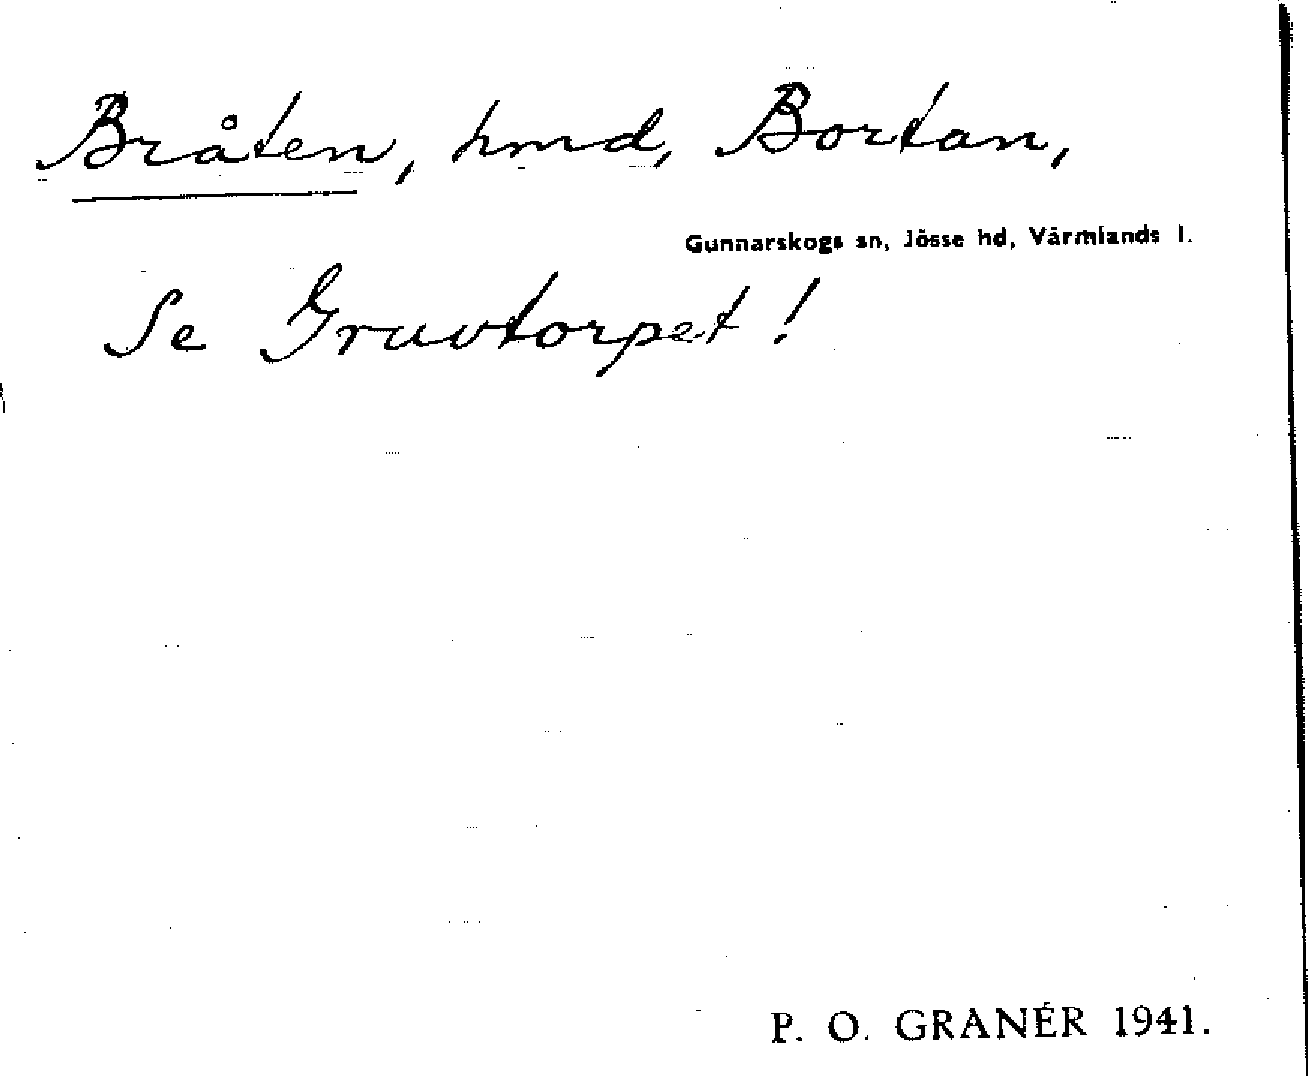 Bråten, hmd, Bortan,
Gunnarskogs sn, Jösse hd, Värmlands l.
Se Gruvtorpet!
P. O. GRANÉR 1941.